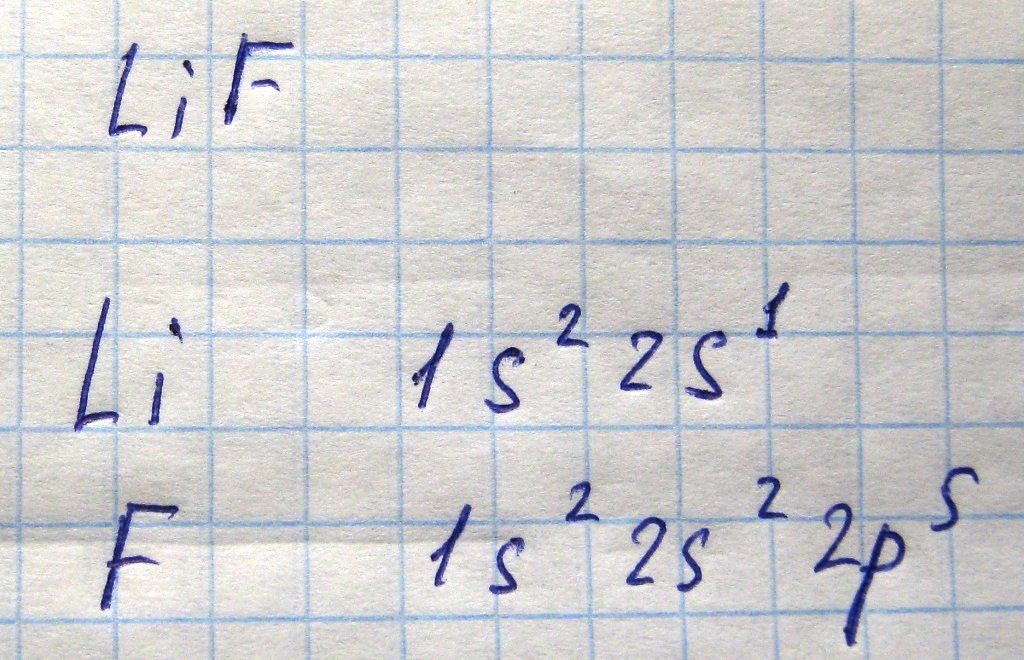 LiF
Li 1s² 2s¹
F 1s² 2s² 2p⁵